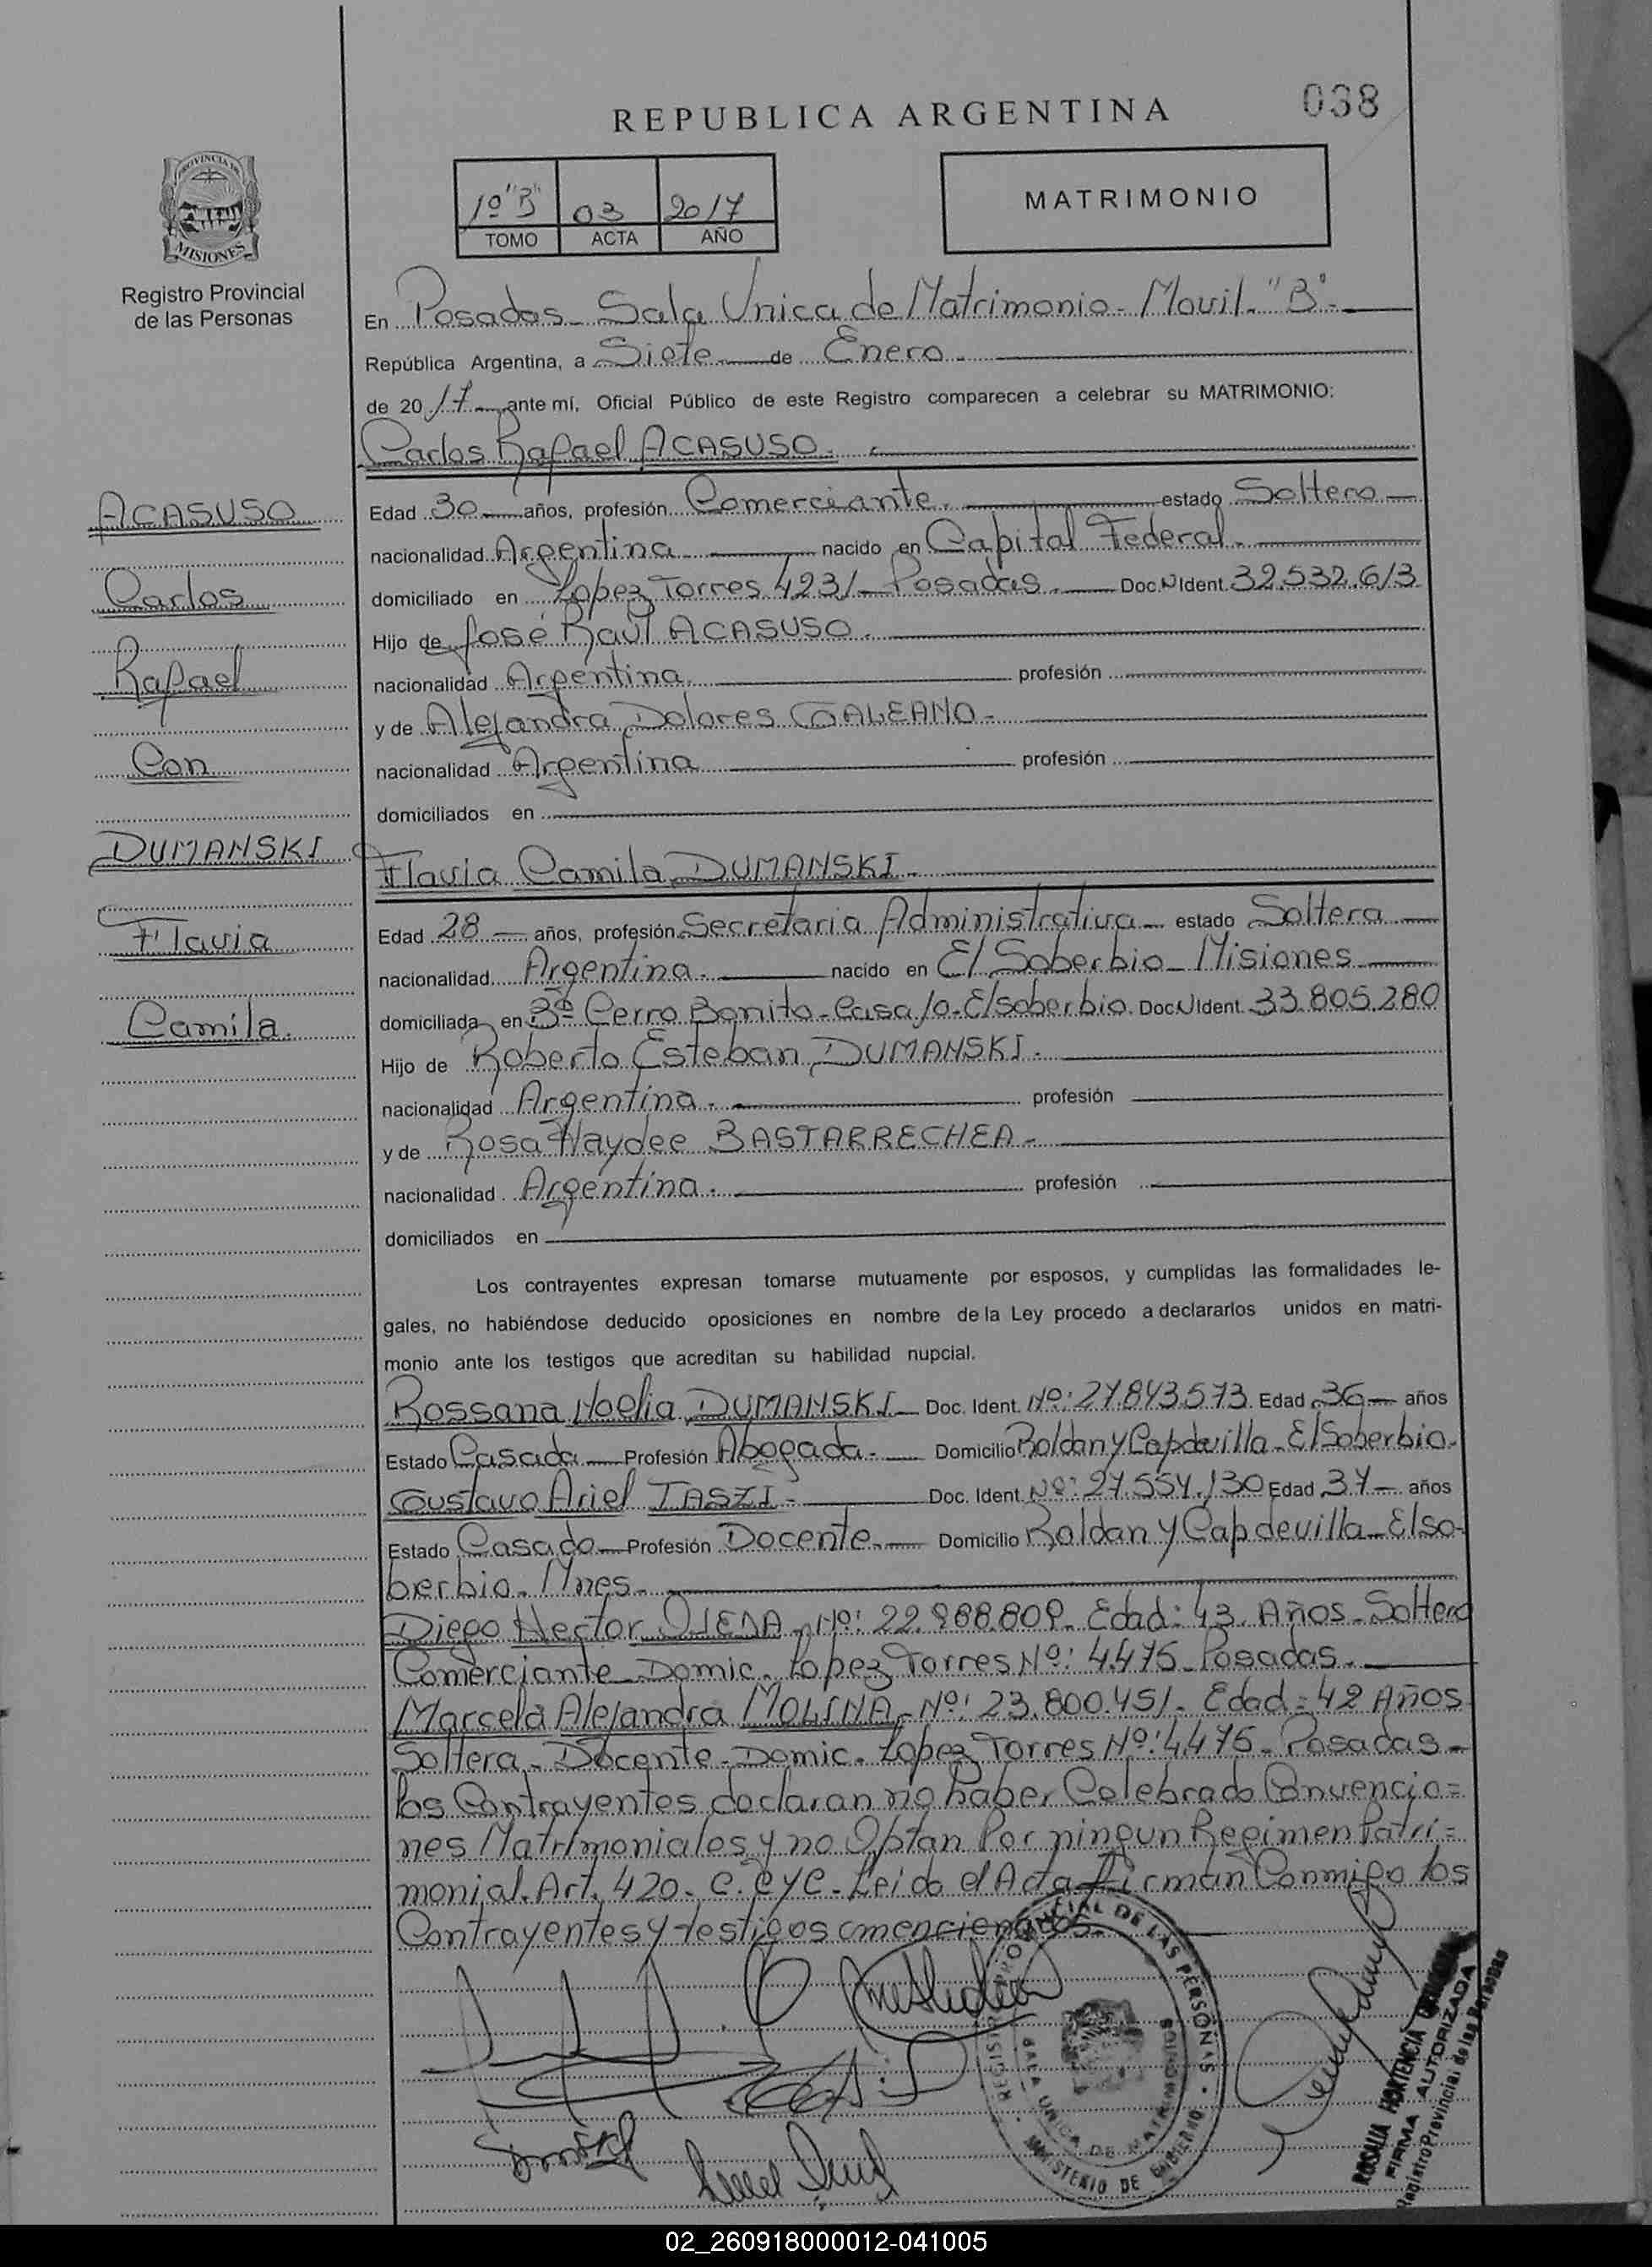 038
REPUBLICA ARGENTINA
1º "B" 03 2017
TOMO ACTA AÑO
MATRIMONIO
PROVINCIA DE
MISIONES
Registro Provincial
de las Personas
En Posadas - Sala Unica de Matrimonio - Movil "B" -
República Argentina, a Siete de Enero -
de 20 17 ante mí, Oficial Público de este Registro comparecen a celebrar su MATRIMONIO:
Carlos Rafael ACASUSO.
Edad 30 años, profesión Comerciante. estado Soltero
nacionalidad Argentina nacido en Capital Federal.
domiciliado en Lopez Torres 4231 - Posadas. Doc. N Ident. 32.532.613
Hijo de José Raúl ACASUSO.
nacionalidad Argentina. profesión
y de Alejandra Dolores GALEANO -
nacionalidad Argentina profesión
domiciliados en
Flavia Camila DUMANSKI -
Edad 28 años, profesión Secretaria Administrativa estado Soltera
nacionalidad Argentina. nacido en El Soberbio - Misiones
domiciliada en Bº Cerro Bonito - Casa 10 - El soberbio. Doc N Ident. 33.805.280
Hijo de Roberto Esteban DUMANSKI.
nacionalidad Argentina. profesión
y de Rosa Haydee BASTARRECHEA -
nacionalidad Argentina. profesión
domiciliados en
ACASUSO
Carlos
Rafael
Con
DUMANSKI
Flavia
Camila.
Los contrayentes expresan tomarse mutuamente por esposos, y cumplidas las formalidades le-
gales, no habiéndose deducido oposiciones en nombre de la Ley procedo a declararlos unidos en matri-
monio ante los testigos que acreditan su habilidad nupcial.
Rossana Noelia DUMANSKI Doc. Ident. Nº: 27.843.573 Edad 36 años
Estado Casada Profesión Abogada. Domicilio Roldan y Capdevilla - El Soberbio.
Gustavo Ariel TASZI - Doc. Ident. Nº: 27.554.130 Edad 37 años
Estado Casado Profesión Docente. Domicilio Roldan y Capdevilla - El so-
berbio - Mnes.
Diego Hector OJEDA - Nº: 22.988.809 - Edad: 43 Años - Soltero
Comerciante - Domic. Lopez Torres Nº: 4.475 - Posadas.
Marcela Alejandra MOLINA - Nº: 23.800.451 - Edad: 42 Años
Soltera - Docente - Domic. Lopez Torres Nº: 4475 - Posadas -
los Contrayentes declaran no haber Celebrado Convencio=
nes Matrimoniales y no Optan Por ningun Regimen Patri=
monial. Art. 420 - C. C y C - Leido el Acta firman Conmigo los
Contrayentes y testigos
REGISTRO PROVINCIAL DE LAS PERSONAS
SALA UNICA DE MATRIMONIOS
MINISTERIO DE GOBIERNO
ROSALIA HORTENCIA
FIRMA AUTORIZADA
Registro Provincial de las Personas
02_260918000012-041005